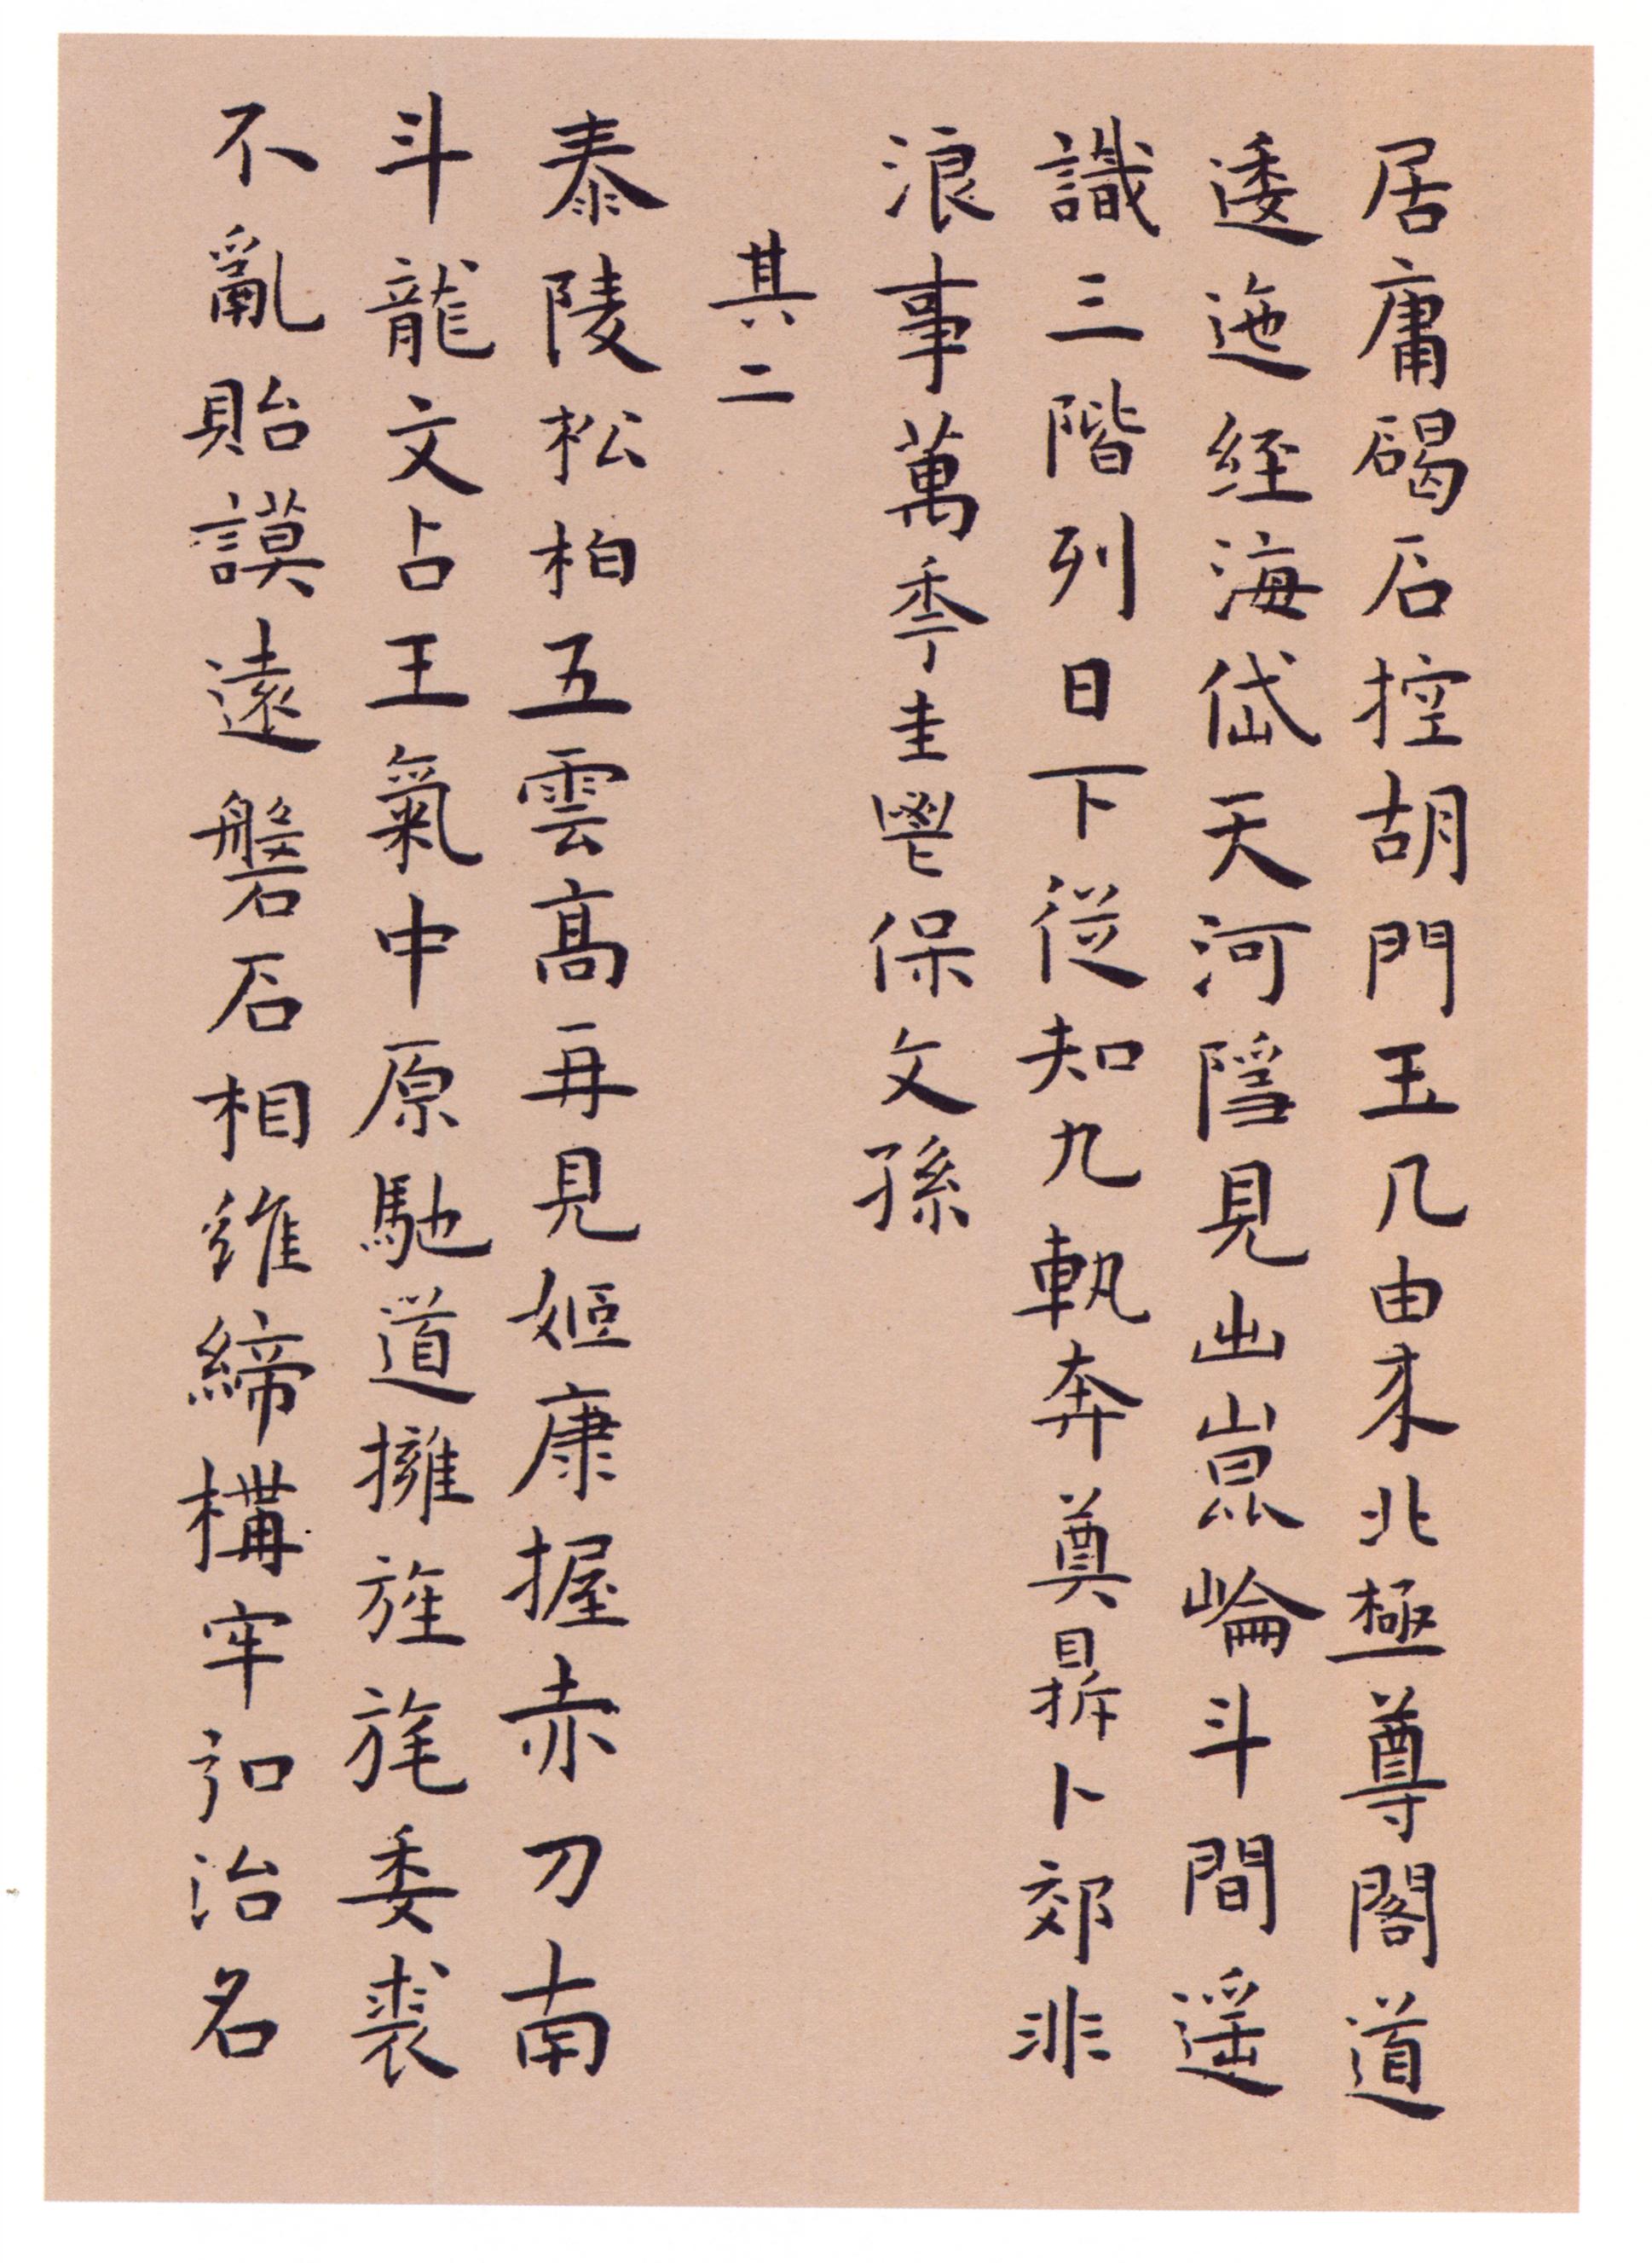 居庸碣石控胡門玉几由来北極尊閣道
逶迤經海岱天河隱見出崑崙斗間遥
識三階列日下從知九軌奔奠鼎卜郊非
浪事萬秊圭鬯保文孫
其二
泰陵松柏五雲高再見姬康握赤刀南
斗龍文占王氣中原馳道擁旌旄委裘
不亂貽謨遠磐石相維締構牢弘治名